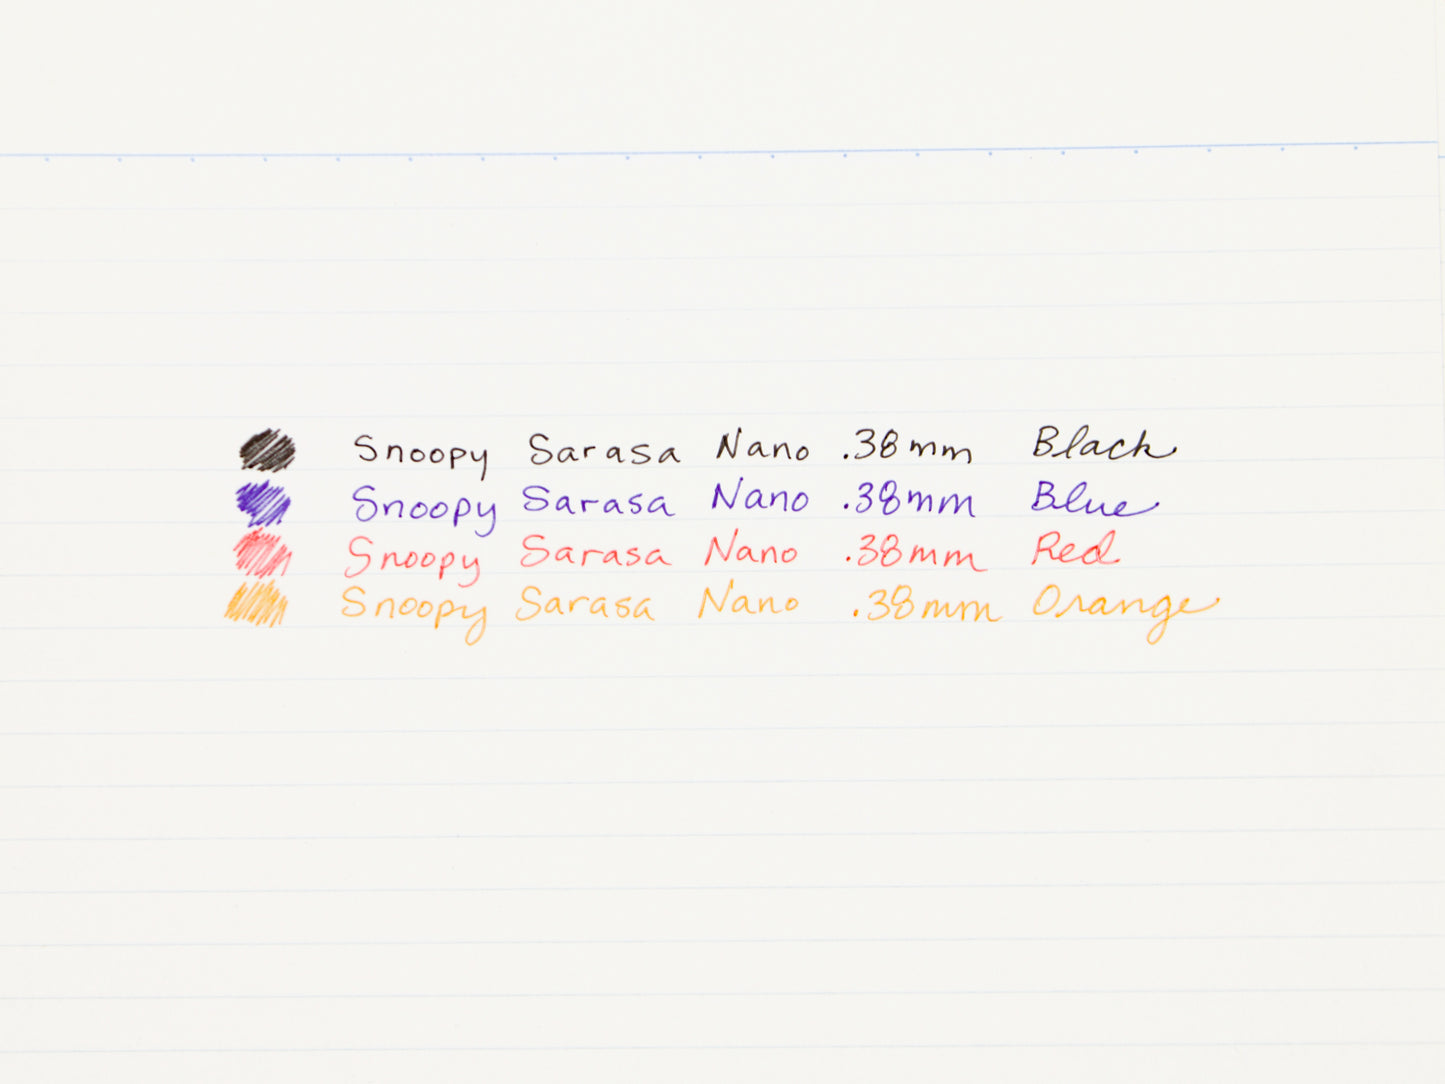 Snoopy Sarasa Nano .38mm Black
Snoopy Sarasa Nano .38mm Blue
Snoopy Sarasa Nano .38mm Red
Snoopy Sarasa Nano .38mm Orange